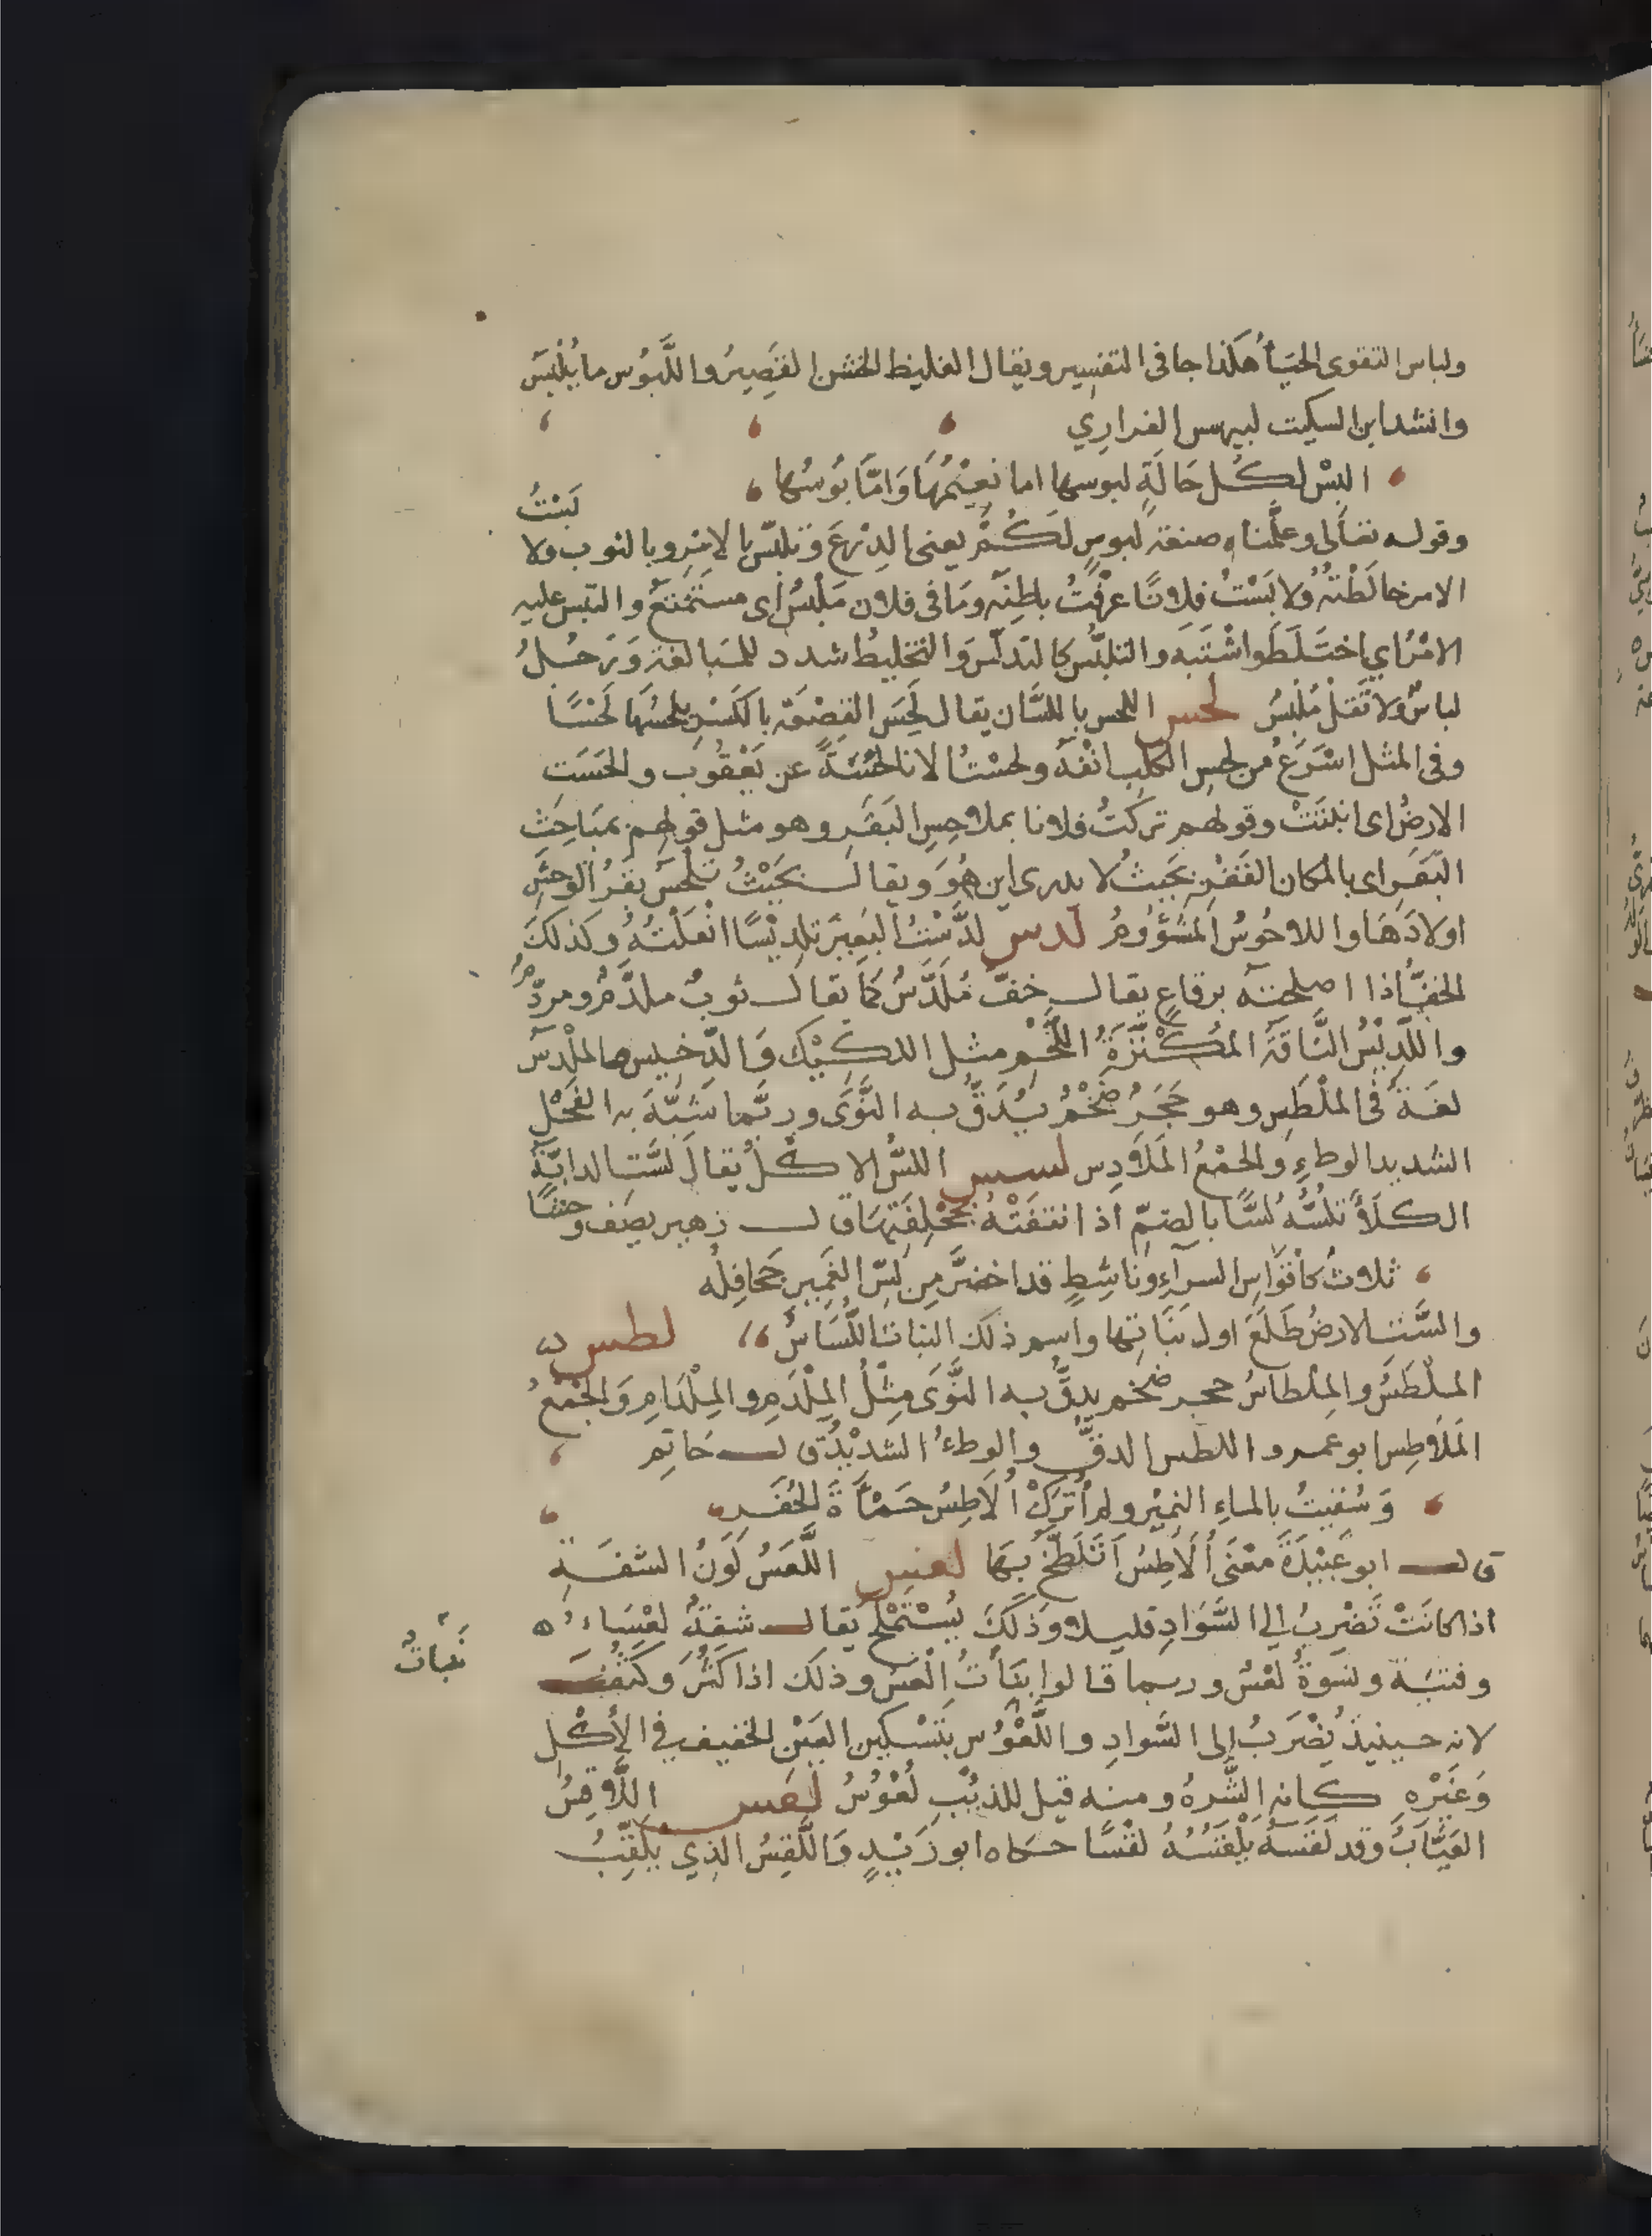 ولباس التقوى الحيَاُ هكذا جا فى التفسير ويقال الغليظ الخشن القَصِيرُ واللَّبُوس ما يُلْبَسُ
وانشد ابن السكيت لبيهس الفزارِي
البَسْ لكُل حَالَةٍ لبوسها اما نعِيْمَهَا وَامَّا بُوسُها
وقوله تعَالى وعلَّمناه صنعَةَ لَبوسٍ لَكُمْ يعنى الدِرْعَ وتلبّس بالامْرِ وبالثوب ولا
بَسْتُ
الامر خالَطْتُهُ ولا بَسْتُ فلانًا عرَفْتُ باطِنَه وَمَا فى فلان مَلْبَسٌ اى مستَمْتَعٌ والتبس عليه
الامْرُ اي اختَلَطَ واشْتَبَه والتلبُّس كالتدلُّس وَالتخليط شدد للمبَالغة وَرَجُلٌ
لباسٌ ولا تَقُل مُلَبِّسٌ لحس اللحس باللسَّان يقال لَحِسَ القصْعَة بالكَسْرِ يلحَسُهَا لَحْسًا
وفى المثل اسْرَعُ من لحسِ الكلبِ انْفَهُ ولحسْتُ الانا لحْسَةً عن يَعْقُوبَ والحَسَتِ
الارضُ اى انبَتَتْ وقولهم تركتُ فلانا بملاحِسِ البَقَرِ وهو مثل قولهم بمَبَاحِثِ
البَقَر اى بالمكان القَفْرِ بحَيثُ لا يدرى اين هُوَ ويقال بحَيْثُ تلحَسُ بقَرُ الوحشِ
اولادَهَا واللاحُوسُ المَشْؤُومُ لدس لدَّسْتُ البَعِيرَ تلدِيسًا انْعَلْتُهُ وكذلكَ
الخفُّ اذا اصلحتَه برقاعٍ يقال خفّ مُلَدَّسٌ كمَا يقال ثوبٌ ملدَّمٌ ومردَّمٌ
واللَدِيْسُ النَّاقَةُ المُكْتَنِزَةُ اللَّحْمِ مثل اللكِيْك وَالدَّخِيس والملْدَسُ
لغَةٌ فى المِلْطَس وهو حَجَرٌ ضَخْمٌ يُدَقُّ به النَّوَى وربَّما شَبَّهَ به الفَحْل
الشديد الوطءِ وَالجمْعُ المَلَادِس لسس اللسُّ الاكْلُ يُقالَ لسَّت الدابَّةُ
الكلأَ تلُسُّه لسًّا بالضمّ اذا نتفَتْهُ بجَحْفلَتهَا قال زهير يصِف وحشًا
ثلاثٌ كاقْوَاسِ السرآءِ ونَاشِطٍ قد اخضرَّ مِن لَسِّ الغَمِيرِ جَحافِلُه
والسَّت الارضُ طَلَعَ اول نبَاتها واسم ذلك النبات اللُّسَاسُ لطس
المِلْطَسُ والمِلْطاسُ حجر ضخم يدقُّ به النَّوَى مثْلُ المِلْدَمِ والمِلْدَامِ وَالجَمْعُ
المَلَاطِس ابو عمرو اللطس الدقُّ والوطءُ الشدِيْدُ قال حَاتِم
وَسُقيتُ بالماءِ النمِيْر ولم أُترَكْ أُلَاطِسُ حَمْأَةَ الحُفَرِ
قال ابو عُبَيْدَةَ معْنَى أُلَاطِسُ اتَلَطَّخُ بهَا لعس اللَّعَسُ لَوْنُ الشفَةِ
اذا كانَتْ تَضْرِبُ إلى السَّوَادِ قليلا وَذلكَ يُسْتَمْلَحُ يُقال شفَةٌ لعْسَاءُ ه
وفتيَة ونسْوَةٌ لعْسٌ وربما قالوا نبَاتٌ الْعَسُ وذلك اذا كَثُرَ وكَثُفَ
نَبَاتٌ
لانه حينيذ يَضْرِبُ الى السَّوادِ واللَّعْوَسُ بتَسْكين العَيْنِ الخفيف في الأكْلِ
وَغَيْرِهِ كانه الشَّرِهُ ومنه قيل للذيْبِ لَعْوَسٌ لقس اللَّاقِسُ
العَيَّابُ وقد لقَسَهُ يلْقسُهُ لقْسًا حكاه ابو زَيْدٍ وَاللَّقِسُ الذِي يُلَقِّبُ